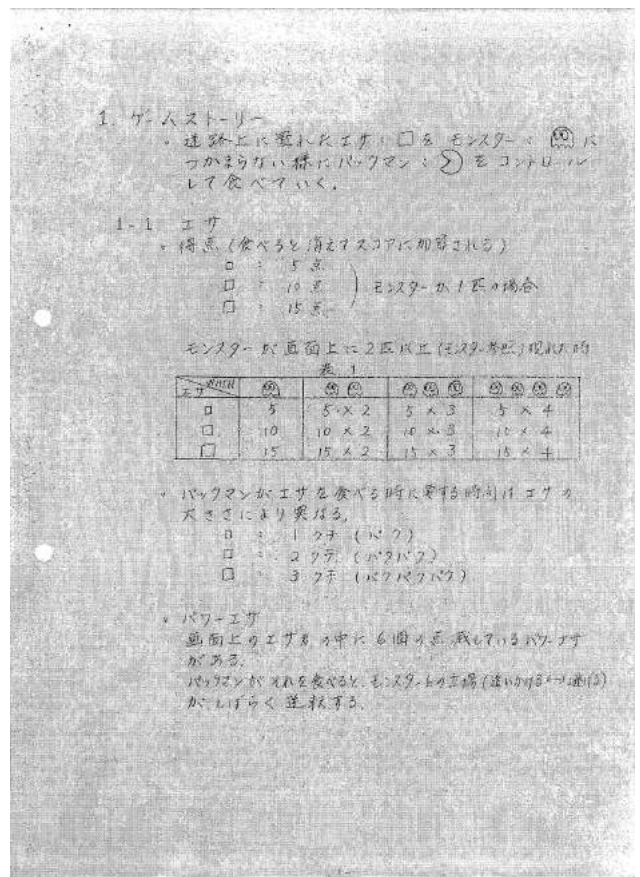 1. ゲームストーリー
。通路上に置れたエサ：□を モンスター：に
つかまらない様にパックマン：をコントロール
して食べていく。
1-1 エサ
。得点（食べると消えてスコアに加算される）
□ : 5点
□ : 10点 モンスターが1匹の場合
□ : 15点
モンスターが画面上に2匹以上(モンスター参照)現れた時
表 1
エサ
□ 5 5×2 5×3 5×4
□ 10 10×2 10×3 10×4
□ 15 15×2 15×3 15×4
。パックマンがエサを食べる時に要する時間はエサの
大きさにより異なる。
□ : 1クチ (パク)
□ : 2クチ (パクパク)
□ : 3クチ (パクパクパク)
。パワーエサ
画面上のエサの中に6個の点滅しているパワーエサ
がある。
パックマンがそれを食べると、モンスターとの立場(追いかける↔逃げる)
がしばらく逆転する。